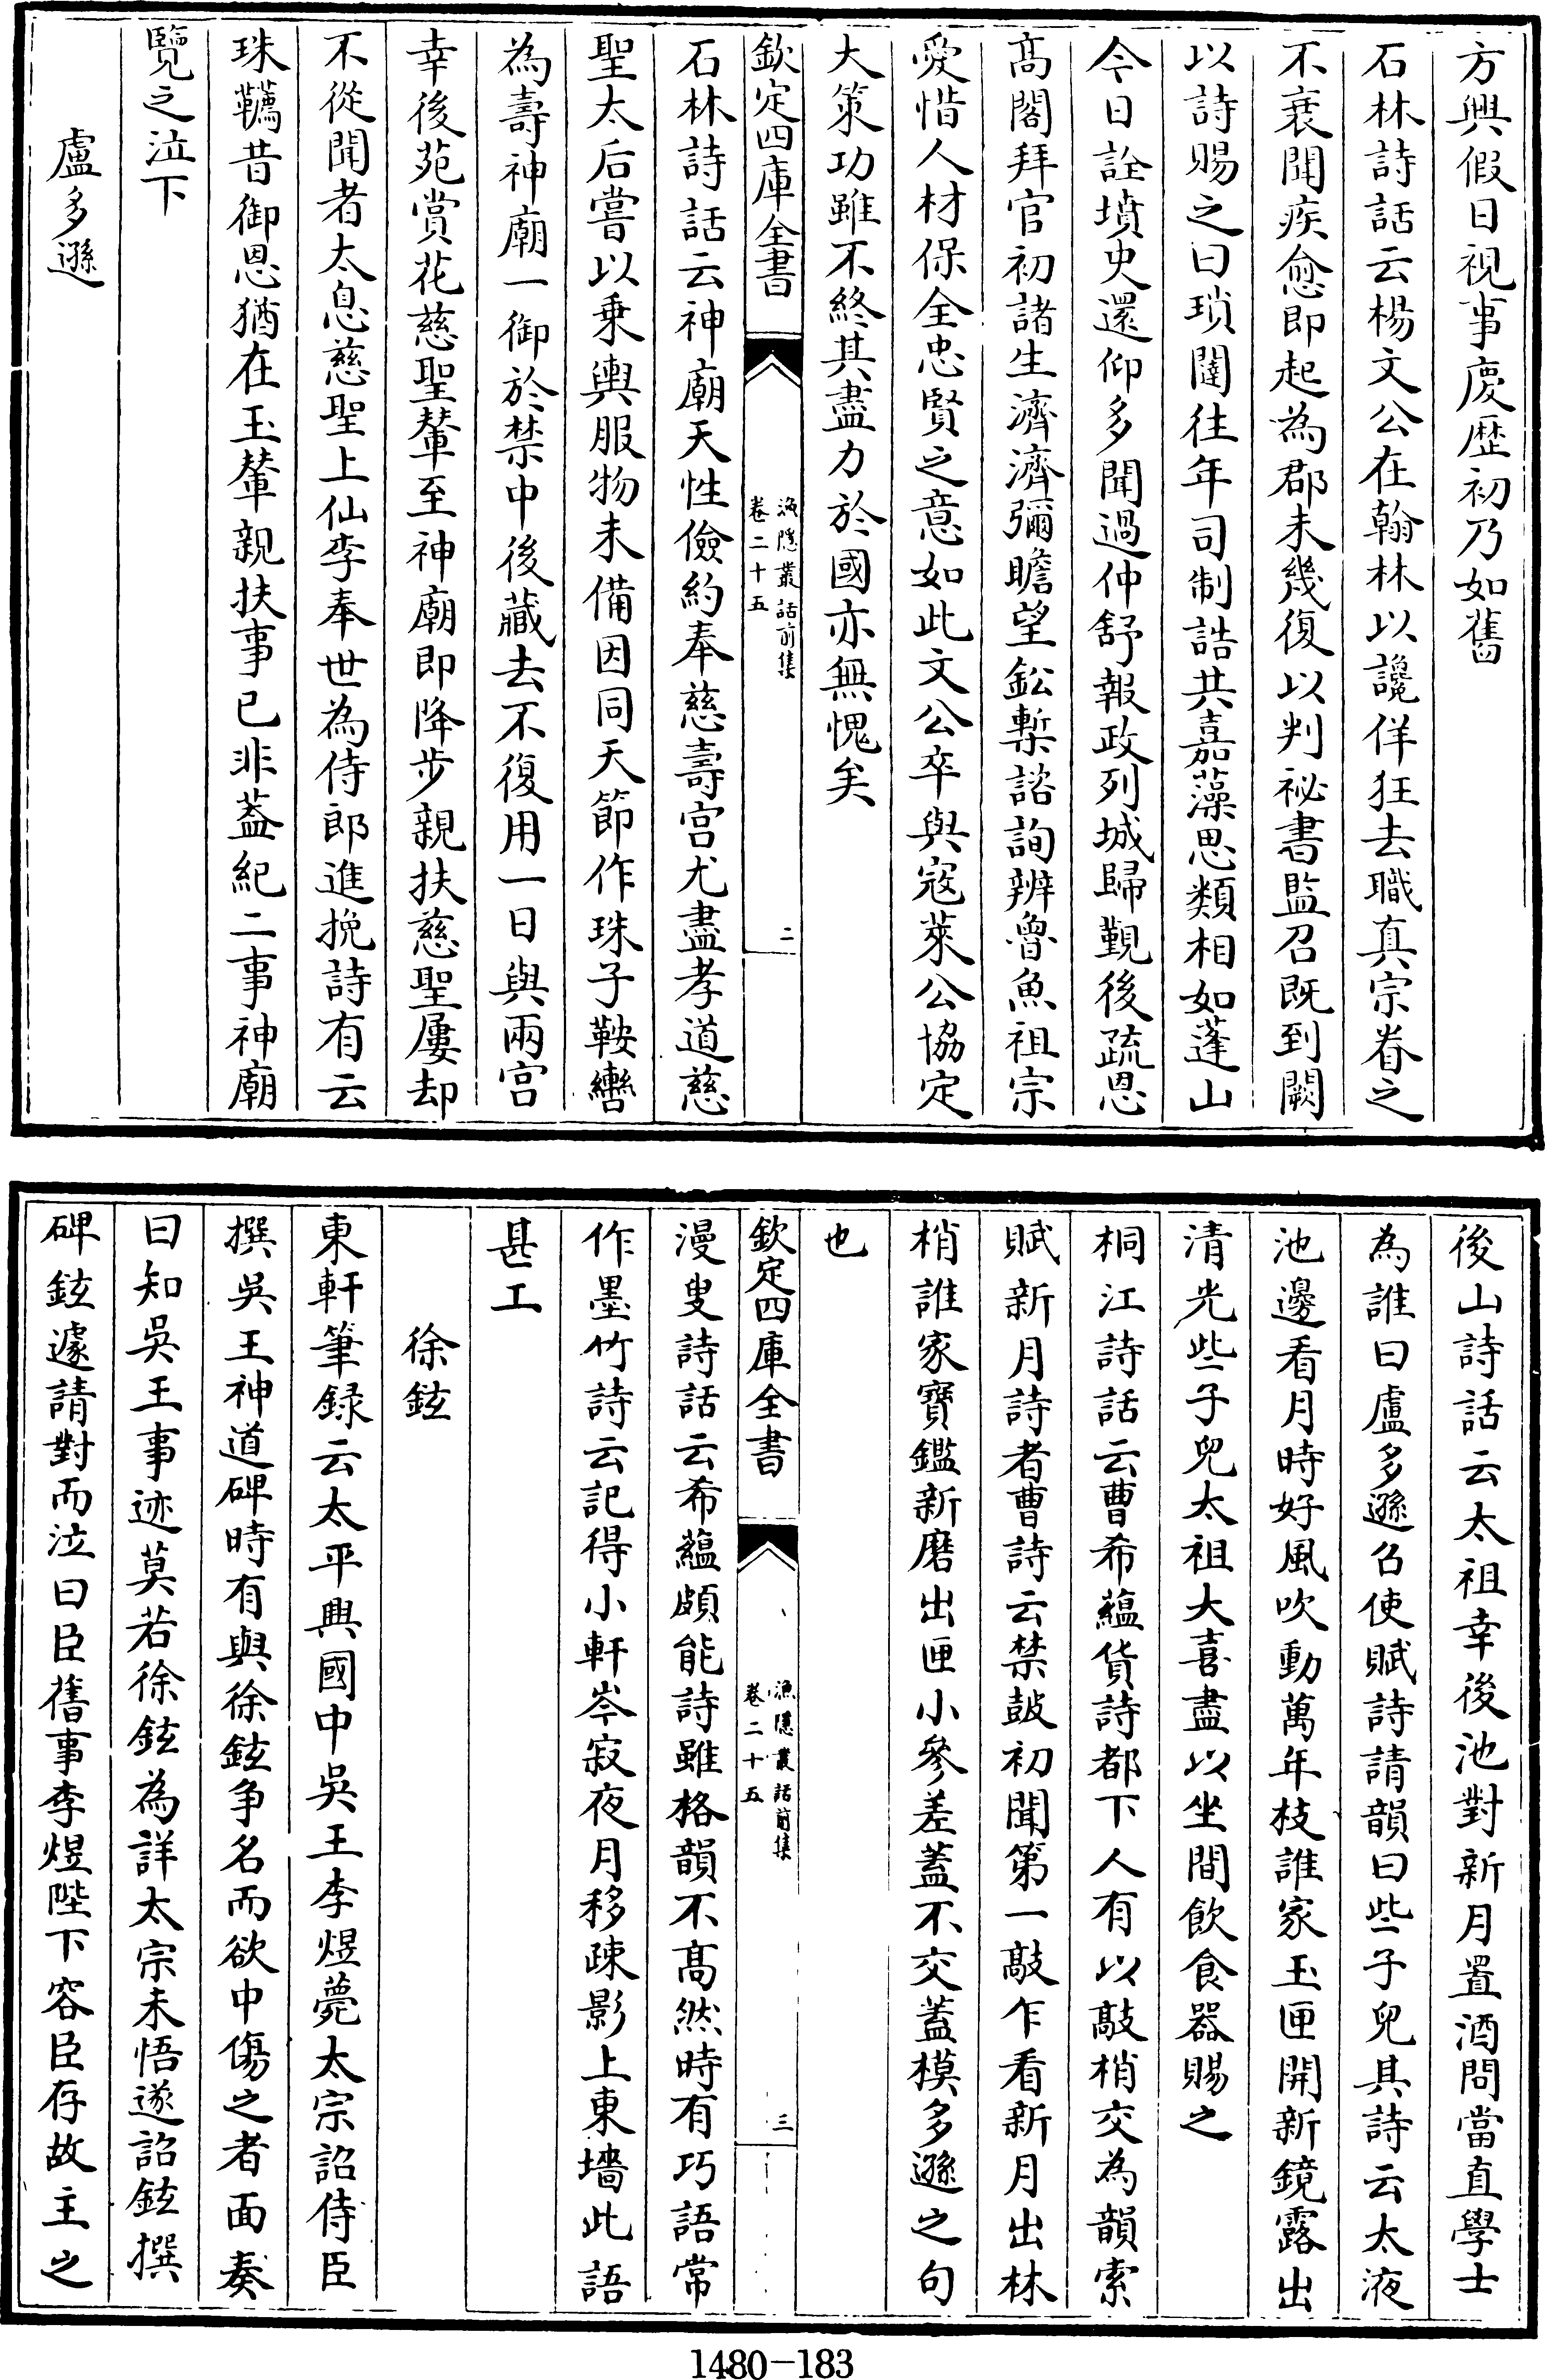 方興假日視事慶歴初乃如舊
石林詩話云楊文公在翰林以讒佯狂去職真宗眷之
不衰聞疾愈即起為郡未幾復以判祕書監召既到闕
以詩賜之曰瑣闥往年司制誥共嘉藻思類相如蓬山
今日詮墳史還仰多聞過仲舒報政列城歸覲後疏恩
髙閣拜官初諸生濟濟彌瞻望鈆槧諮詢辨魯魚祖宗
愛惜人材保全忠賢之意如此文公卒與寇萊公協定
大策功雖不終其盡力於國亦無愧矣
欽定四庫全書
漁隱叢話前集
卷二十五
二
石林詩話云神廟天性儉約奉慈壽宫尤盡孝道慈
聖太后嘗以乗輿服物未備因同天節作珠子鞍轡
為壽神廟一御於禁中後藏去不復用一日與兩宫
幸後苑賞花慈聖輦至神廟即降步親扶慈聖屢却
不從聞者太息慈聖上仙李奉世為侍郎進挽詩有云
珠韉昔御恩猶在玉輦親扶事已非葢紀二事神廟
覽之泣下
盧多遜
後山詩話云太祖幸後池對新月置酒問當直學士
為誰曰盧多遜召使賦詩請韻曰些子兒其詩云太液
池邊看月時好風吹動萬年枝誰家玉匣開新鏡露出
清光些子兒太祖大喜盡以坐間飲食器賜之
桐江詩話云曹希藴貨詩都下人有以敲梢交為韻索
賦新月詩者曹詩云禁鼓初聞第一敲乍看新月出林
梢誰家寳鑑新磨出匣小參差蓋不交蓋模多遜之句
也
欽定四庫全書
漁隱叢話前集
卷二十五
三
漫叟詩話云希藴頗能詩雖格韻不髙然時有巧語常
作墨竹詩云記得小軒岑寂夜月移疎影上東墻此語
甚工
徐鉉
東軒筆録云太平興國中吳王李煜薨太宗詔侍臣
撰吳王神道碑時有與徐鉉争名而欲中傷之者面奏
曰知吳王事迹莫若徐鉉為詳太宗未悟遂詔鉉撰
碑鉉遽請對而泣曰臣舊事李煜陛下容臣存故主之
1480-183